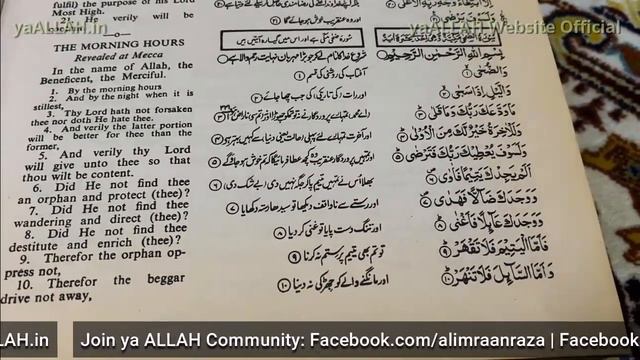 yaALLAH.in
yaALLAH Website Official
fulfil) the purpose of his Lord
Most High.
21. He verily will be
THE MORNING HOURS
Revealed at Mecca
In the name of Allah, the
Beneficent, the Merciful.
1. By the morning hours
2. And by the night when it is
stillest,
3. Thy Lord hath not forsaken
thee nor doth He hate thee.
4. And verily the latter portion
will be better for thee than the
former,
5. And verily thy Lord
will give unto thee so that
thou wilt be content.
6. Did He not find thee
an orphan and protect (thee)?
7. Did He not find thee
wandering and direct (thee)?
8. Did He not find thee
destitute and enrich (thee)?
9. Therefor the orphan op-
press not,
10. Therefor the beggar
drive not away,
اور وہ عنقریب خوش ہو جائے گا ۲۱
سورۃ ضحیٰ مکی ہے اور اس میں گیارہ آیتیں ہیں
شروع خدا کا نام لے کر جو بڑا مہربان نہایت رحم والا ہے
آفتاب کی روشنی کی قسم ۱
اور رات کی تاریکی کی جب چھا جائے ۲
اور آخرت تمہارے لئے پہلی حالت یعنی دنیا سے کہیں بہتر ہے ۴
بھلا اُس نے تمہیں یتیم پا کر جگہ نہیں دی؟ بے شک دی ۶
اور رستے سے ناواقف دیکھا تو سیدھا رستہ دکھایا ۷
اور تنگ دست پایا تو غنی کر دیا ۸
تو تم بھی یتیم پر ستم نہ کرنا ۹
اور مانگنے والے کو جھڑکی نہ دینا ۱۰
وَلَسَوْفَ يَرْضٰى
بِسْمِ اللّٰهِ الرَّحْمٰنِ الرَّحِيْمِ
وَالضُّحٰى ۱
وَالَّيْلِ اِذَا سَجٰى ۲
مَا وَدَّعَكَ رَبُّكَ وَمَا قَلٰى ۳
وَلَلْاٰخِرَةُ خَيْرٌ لَّكَ مِنَ الْاُوْلٰى ۴
وَلَسَوْفَ يُعْطِيْكَ رَبُّكَ فَتَرْضٰى ۵
اَلَمْ يَجِدْكَ يَتِيْمًا فَاٰوٰى ۶
وَوَجَدَكَ ضَآلًّا فَهَدٰى ۷
وَوَجَدَكَ عَآئِلًا فَاَغْنٰى ۸
فَاَمَّا الْيَتِيْمَ فَلَا تَقْهَرْ ۹
وَاَمَّا السَّآئِلَ فَلَا تَنْهَرْ ۱۰
LAH.in
Join ya ALLAH Community: Facebook.com/alimraanraza | Facebook